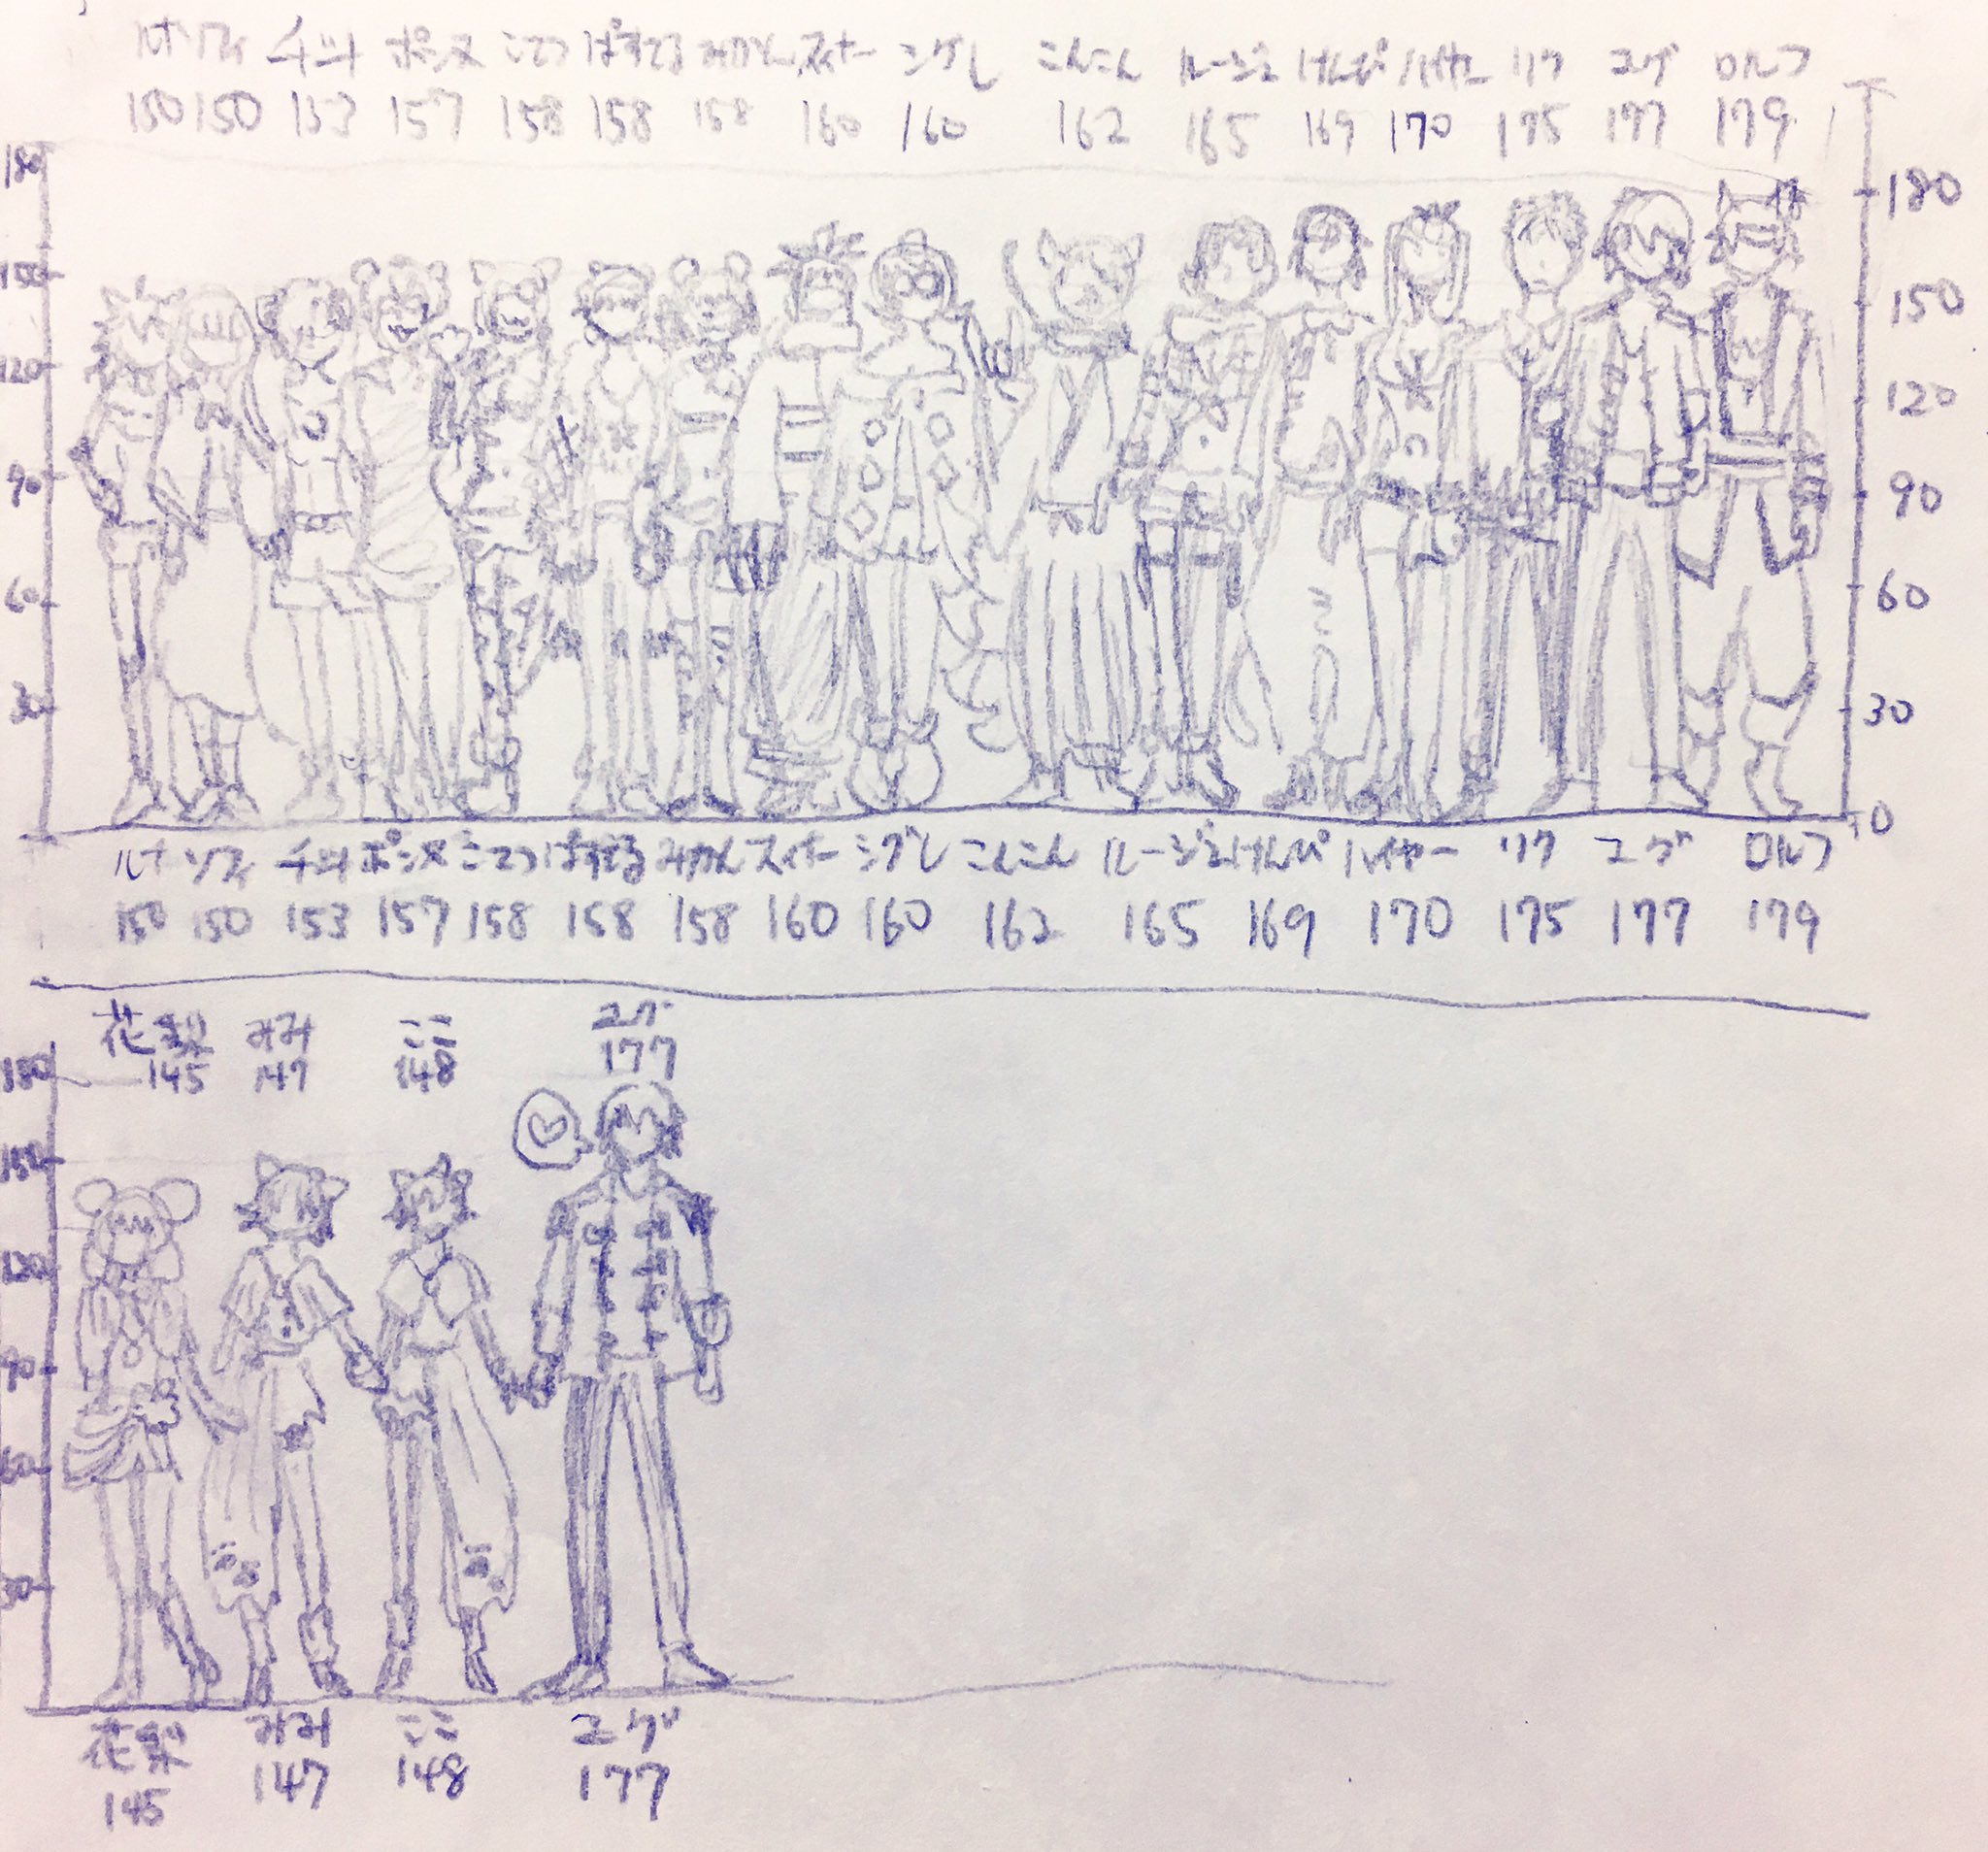 ルナ ソフィ チット ポンヌ こてつ ぱすてる みかん スィナー シグレ こんこん ルージュ けんぴ ハイヤー リク ユグ ロルフ
150 150 153 157 158 158 158 160 160 162 165 169 170 175 177 179
180 180
150 150
120 120
90 90
60 60
30 30
0
ルナ ソフィ チット ポンヌ こてつ ぱすてる みかん スィナー シグレ こんこん ルージュ けんぴ ハイヤー リク ユグ ロルフ
150 150 153 157 158 158 158 160 160 162 165 169 170 175 177 179
花梨 みみ ここ ユグ
145 147 148 177
180
150
120
90
60
30
花梨 みみ ここ ユグ
145 147 148 177